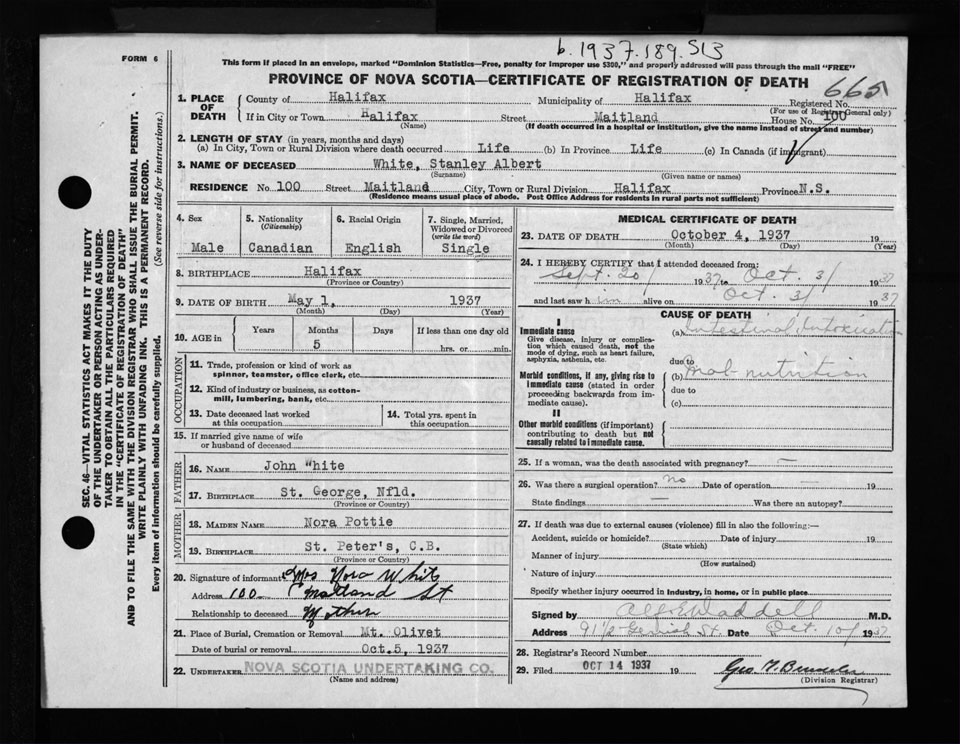 b. 1937.189.513
665
FORM 6
This form if placed in an envelope, marked "Dominion Statistics—Free, penalty for improper use $300," and properly addressed will pass through the mail "FREE"
PROVINCE OF NOVA SCOTIA—CERTIFICATE OF REGISTRATION OF DEATH
SEC. 46—VITAL STATISTICS ACT MAKES IT THE DUTY
OF THE UNDERTAKER OR PERSON ACTING AS UNDER-
TAKER TO OBTAIN ALL THE PARTICULARS REQUIRED
IN THE "CERTIFICATE OF REGISTRATION OF DEATH"
AND TO FILE THE SAME WITH THE DIVISION REGISTRAR WHO SHALL ISSUE THE BURIAL PERMIT.
WRITE PLAINLY WITH UNFADING INK. THIS IS A PERMANENT RECORD.
Every item of information should be carefully supplied. (See reverse side for instructions.)
1. PLACE OF DEATH
County of Halifax Municipality of Halifax Registered No.
(For use of Registrar General only)
If in City or Town Halifax Street Maitland House No. 100
(Name) (If death occurred in a hospital or institution, give the name instead of street and number)
2. LENGTH OF STAY (in years, months and days)
(a) In City, Town or Rural Division where death occurred Life (b) In Province Life (c) In Canada (if immigrant)
3. NAME OF DECEASED White, Stanley Albert
(Surname) (Given name or names)
RESIDENCE No. 100 Street Maitland City, Town or Rural Division Halifax Province N.S.
(Residence means usual place of abode. Post Office Address for residents in rural parts not sufficient)
4. Sex Male
5. Nationality (Citizenship) Canadian
6. Racial Origin English
7. Single, Married, Widowed or Divorced (write the word) Single
8. BIRTHPLACE Halifax
(Province or Country)
9. DATE OF BIRTH May 1, 1937
(Month) (Day) (Year)
10. AGE in Years Months Days If less than one day old
5 hrs. or min.
OCCUPATION
11. Trade, profession or kind of work as
spinner, teamster, office clerk, etc.
12. Kind of industry or business, as cotton-
mill, lumbering, bank, etc.
13. Date deceased last worked
at this occupation
14. Total yrs. spent in
this occupation
15. If married give name of wife
or husband of deceased
FATHER
16. NAME John White
17. BIRTHPLACE St. George, Nfld.
(Province or Country)
MOTHER
18. MAIDEN NAME Nora Pottie
19. BIRTHPLACE St. Peter's, C.B.
(Province or Country)
20. Signature of informant Mrs Nora White
Address 100 Maitland St
Relationship to deceased Mother
21. Place of Burial, Cremation or Removal Mt. Olivet
Date of burial or removal Oct. 5, 1937
22. UNDERTAKER NOVA SCOTIA UNDERTAKING CO.
(Name and address)
MEDICAL CERTIFICATE OF DEATH
23. DATE OF DEATH October 4, 1937 19
(Month) (Day) (Year)
24. I HEREBY CERTIFY that I attended deceased from:
Sept. 20/ 1937 to Oct. 3/ 1937
and last saw him alive on Oct. 3/ 1937
CAUSE OF DEATH
I
Immediate cause
Give disease, injury or complica-
tion which caused death, not the
mode of dying, such as heart failure,
asphyxia, asthenia, etc.
(a) Intestinal Intoxication
due to
Morbid conditions, if any, giving rise to
immediate cause (stated in order
proceeding backwards from im-
mediate cause).
(b) Mal-nutrition
due to
(c)
II
Other morbid conditions (if important)
contributing to death but not
causally related to immediate cause.
25. If a woman, was the death associated with pregnancy? —
26. Was there a surgical operation? no Date of operation — 19
State findings — Was there an autopsy?
27. If death was due to external causes (violence) fill in also the following:—
Accident, suicide or homicide? Date of injury 19
(State which)
Manner of injury
(How sustained)
Nature of injury
Specify whether injury occurred in Industry, in home, or in public place
Signed by Waddell M.D.
Address 91½ St. Date Oct. 10/ 1937
28. Registrar's Record Number
29. Filed OCT 14 1937 19
(Division Registrar)